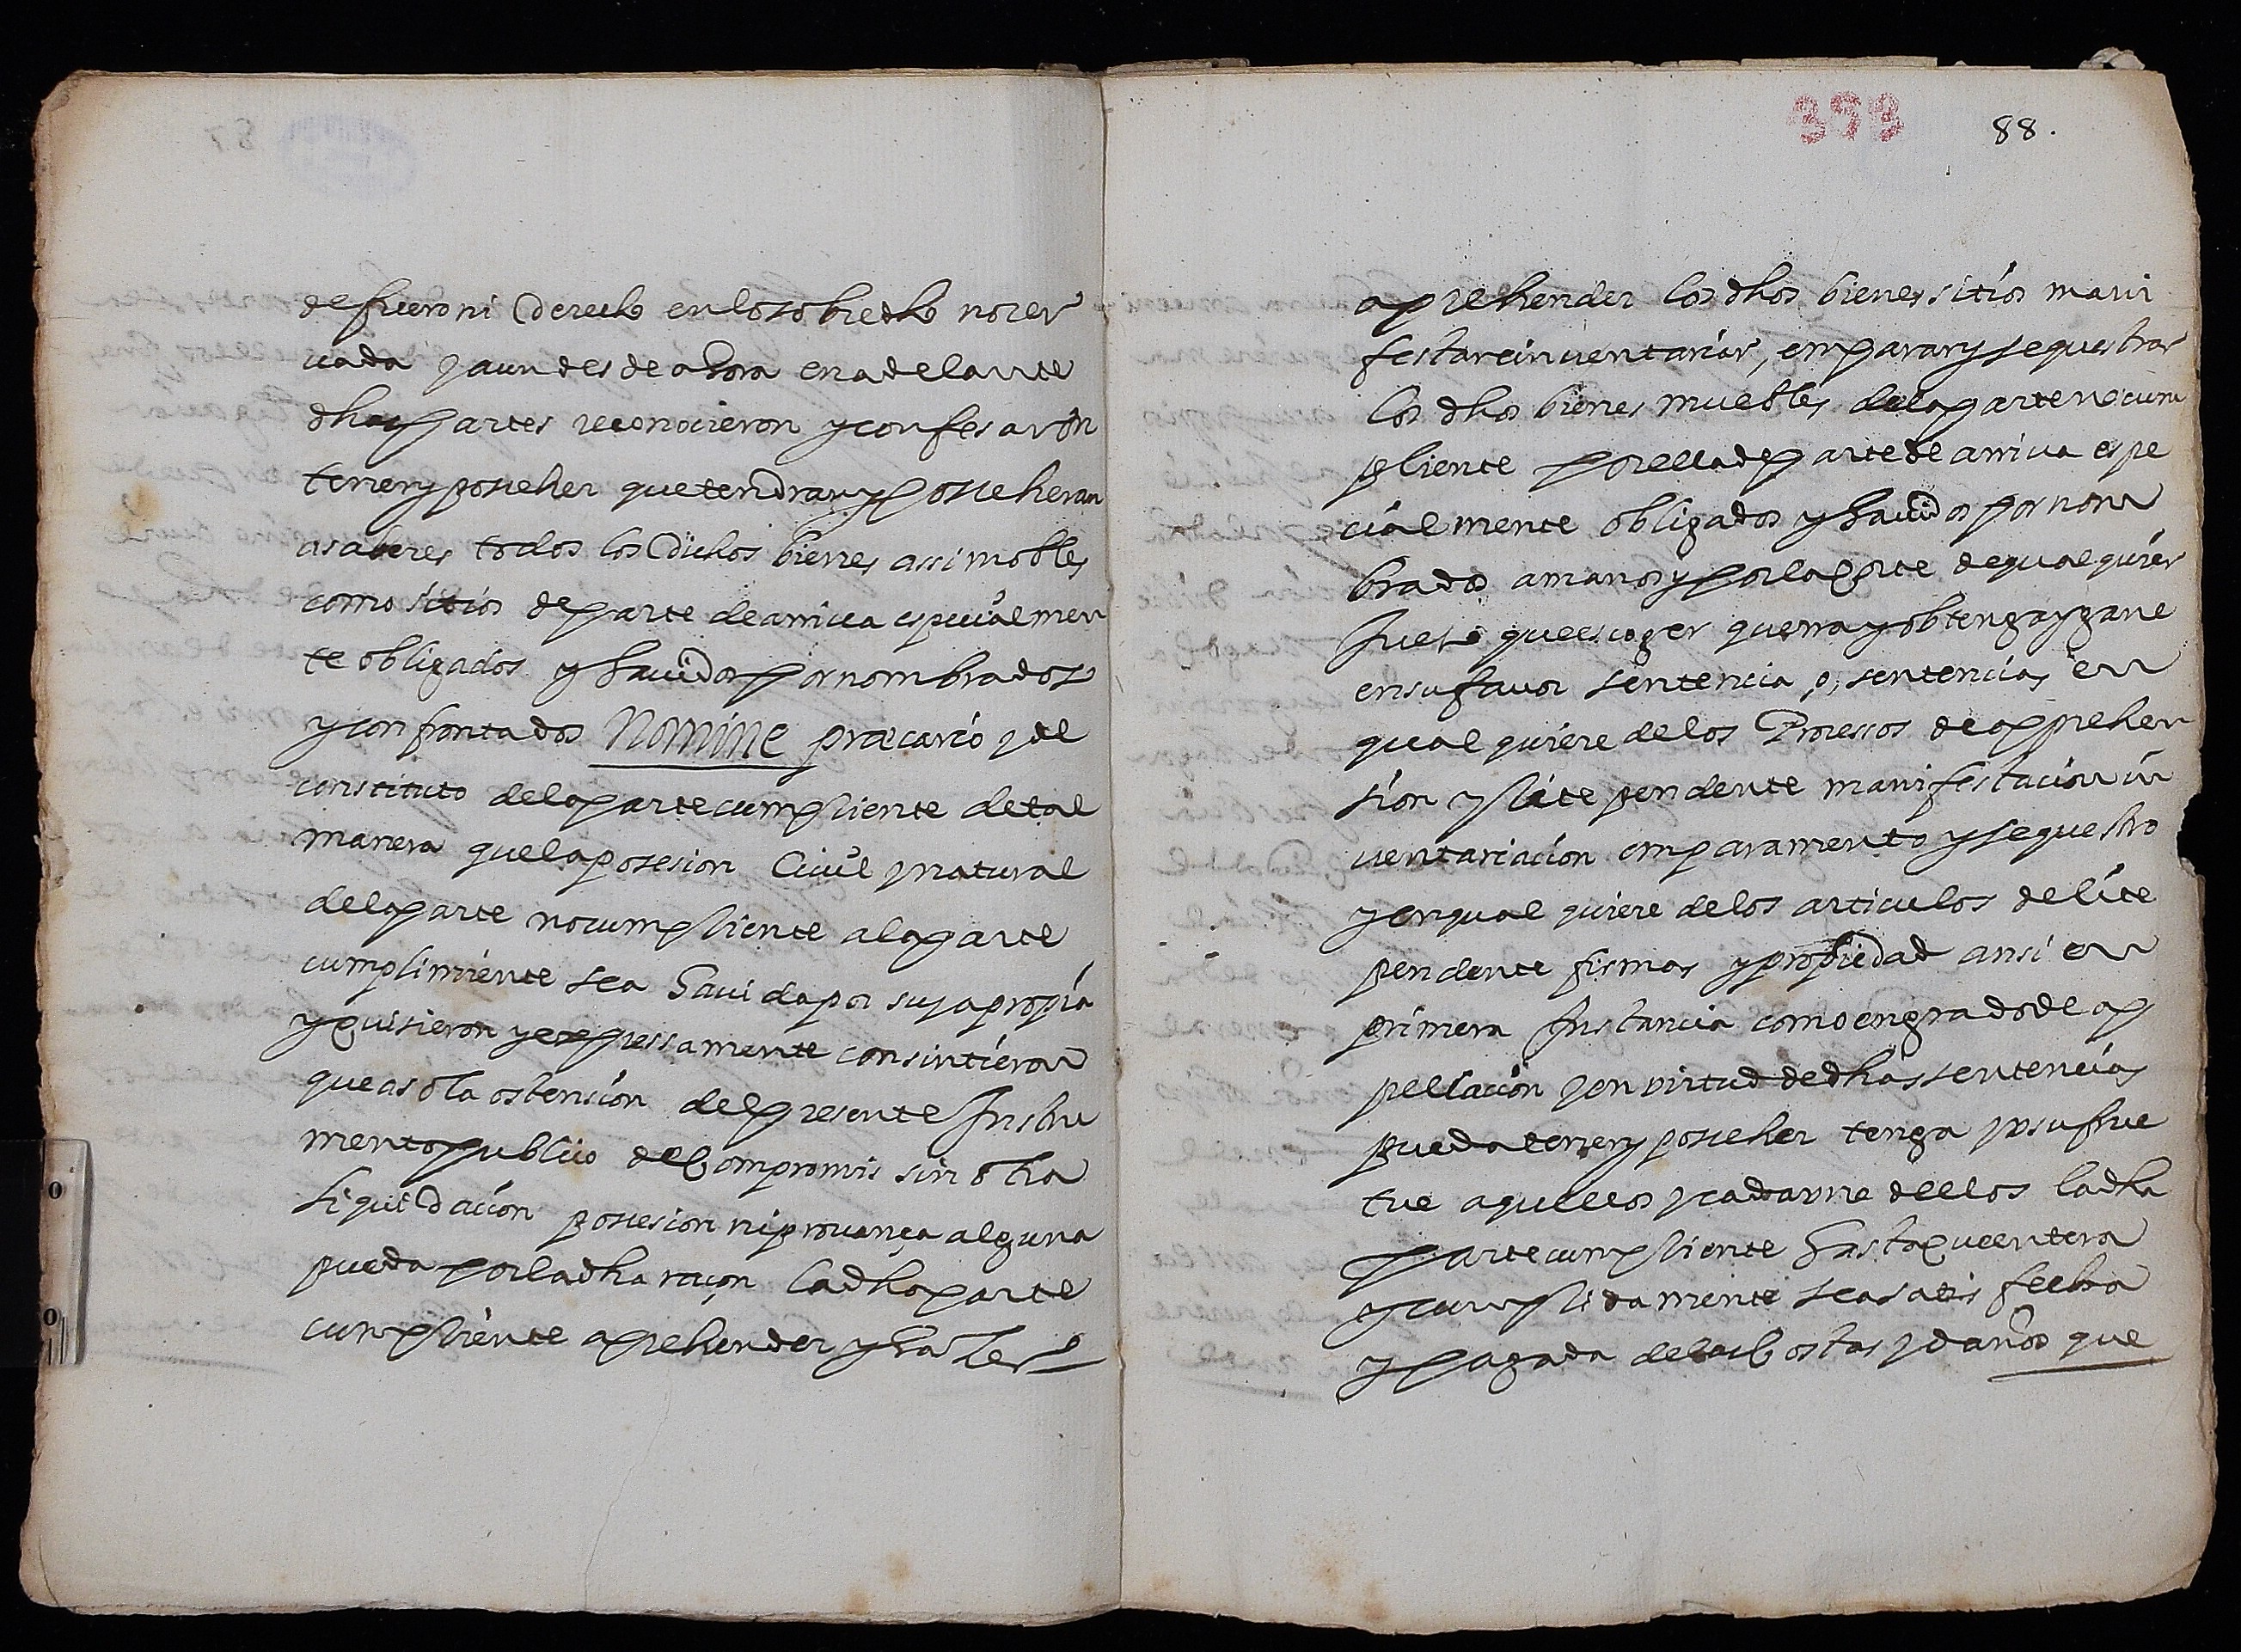 de fuero ni Derecho en lo sobredho no ser
uada y aun des de ahora en adelante
dhas partes reconocieron y confesaron
tener y posseher que tendran y posseheran
asaberes todos los Dichos bienes assi mobles
como sitios de parte de arriua especialmen
te obligados y hauidos por nombrados
y confrontados Nomine præcario y de
constituto de la parte cumpliente de tal
manera que la posesion Ciuil y natural
de la parte no cumpliente a la parte
cumplimiente sea hauida por suya propia
y quisieron y expressamente consintieron
que a sola ostension del presente Instru
mento publico de Compromis sin otra
liquidacion possesion ni prouança alguna
pueda por la dha raçon la dha parte
cumpliente aprehender y hazer
393
88.
aprehender los dhos bienes sitios mani
festar e inuentariar, emparar y sequestrar
los dhos bienes muebles de la parte no cum
pliente por ella de parte de arriua espe
cialmente obligados y hauidos por nom
brados a manos y por la corte de qualquier
Juez que escoger querra y obtenga y gane
en su fauor sentencia, o, sentencias en
qual quiere de los Processos de apprehen
sion y lite pendente manifestacion in
uentariacion emparamento y sequestro
y en qual quiere de los articulos de lite
pendente firmas y propiedad ansi en
primera Instancia como en grado de ap
pellacion y en virtud de dhas sentencias
pueda tener y posseher tenga y usufrue
tue aquellos y cada vno dellos la dha
parte cumpliente hasta que entera
y cumplidamente sea satisfecha
y pagada de las Costas y daños que
87